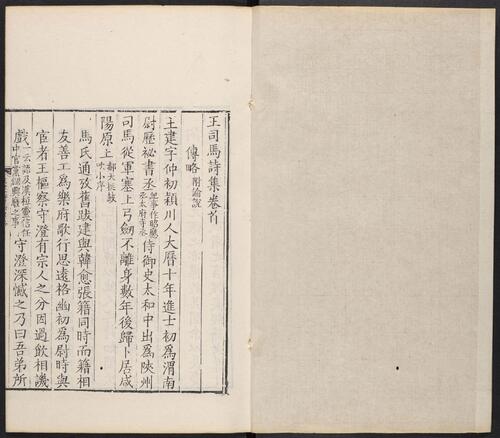 王司馬詩集卷首
傳略附論説
王建字仲初潁川人大曆十年進士初為渭南
尉歷祕書丞侍御史太和中出為陜州
司馬從軍塞上弓劒不離身數年後歸卜居咸
陽原上
馬氏通攷舊跋建與韓愈張籍同時而籍相
友善工為樂府歌行思遠格幽初為尉時與
宦者王樞察守澄有宗人之分因過飲相譏
戲守澄深憾之乃曰吾弟所